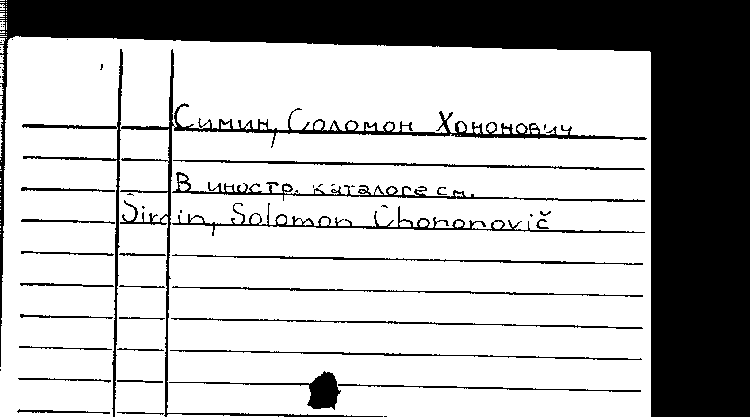 Симин, Соломон Хононович
В иностр. каталоге см.
Solomon Chononovič